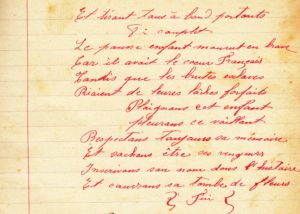 Et tirant tous à bout portants
5e couplet
Le pauvre enfant mourut en brave
Car il avait le cœur Français
Tandis que les brutes esclaves
Riaient de leures lâches forfaits
Plaignons cet enfant
pleurons ce vaillant
Respectons toujours sa mémoire
Et sachons être ses vengeurs
Inscrivons son nom dans l'histoire
Et couvrons sa tombe de fleurs
Fin